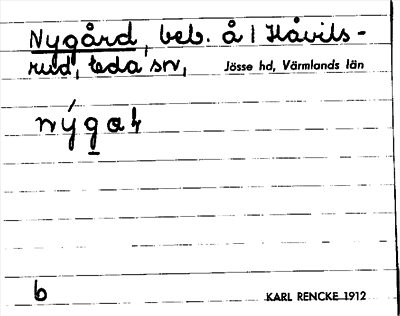 Nygård, beb. å 1 Håvils-
rud, Eda sn, Jösse hd, Värmlands län
nýga
6 KARL RENCKE 1912